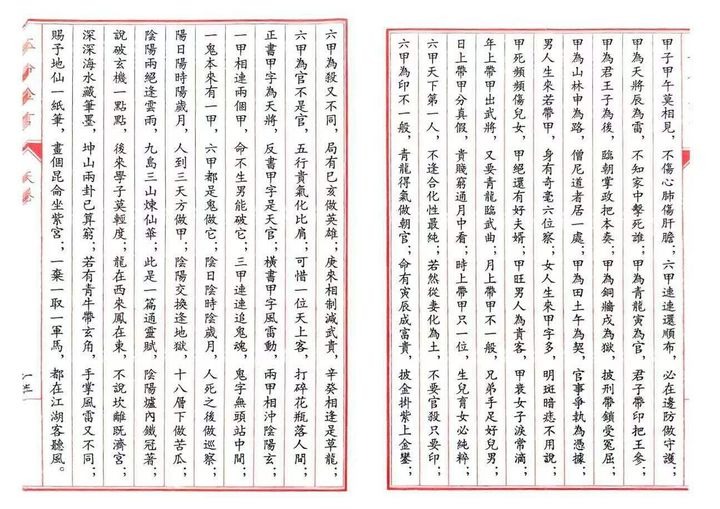 甲子甲午莫相見，不傷心肺傷肝膽；六甲連連還順布，必在邊防做守護；
甲為天將辰為雷，不知家中擊死誰；甲為青龍寅為官，君子帶印把王參；
甲為君王子為後，臨朝掌政把本奏；甲為銅牆戍為獄，披刑帶鎖受冤屈；
甲為山林申為路，僧尼道者居一處；甲為田土午為契，官事爭執為憑據；
男人生來若帶甲，身有奇毫六位察；女人生來甲字多，明斑暗痣不用說；
甲死頻頻傷兒女，甲絕還有好夫婿；甲旺男人為貴客，甲衰女子淚常滴；
年上帶甲出武將，又要青龍臨武曲；月上帶甲不一般，兄弟手足好兒男；
日上帶甲分真假，貴賤窮通月中看；時上帶甲只一位，生兒育女必純粹；
六甲天下第一人，不逢合化性最純；若然從妻化為土，不要官殺只要印；
六甲為印不一般，青龍得氣做朝官；命有寅辰成富貴，披金掛紫上金鑾；
六甲為殺又不同，局有巳亥做英雄；庚來相制減武貴，辛癸相逢是草龍；
六甲為官不是官，五行貴氣化比肩；可惜一位天上客，打碎花瓶落人間；
正書甲字為天將，反書甲字是天官；橫書甲字風雷動，兩甲相沖陰陽玄；
一甲相連兩個甲，命不生男能破它；三甲連連追鬼魂，鬼字無頭站中間；
一鬼本來有一甲，六甲都是鬼做它；陰日陰時陰歲月，人死之後做巡察；
陽日陽時陽歲月，人到三天方做甲；陰陽交換逢地獄，十八層下做苦瓜；
陰陽兩絕逢雲雨，九島三山煉仙華；此是一篇通靈賦，陰陽爐內鐵冠著；
說破玄機一點點，後來學子莫輕度；龍在西來鳳在東，不說坎離既濟宮；
深深海水藏筆墨，坤山兩卦已算窮；若有青牛帶玄角，手掌風雷又不同；
賜予地仙一紙筆，畫個昆侖坐紫宮；一棄一取一軍馬，都在江湖客聽風。